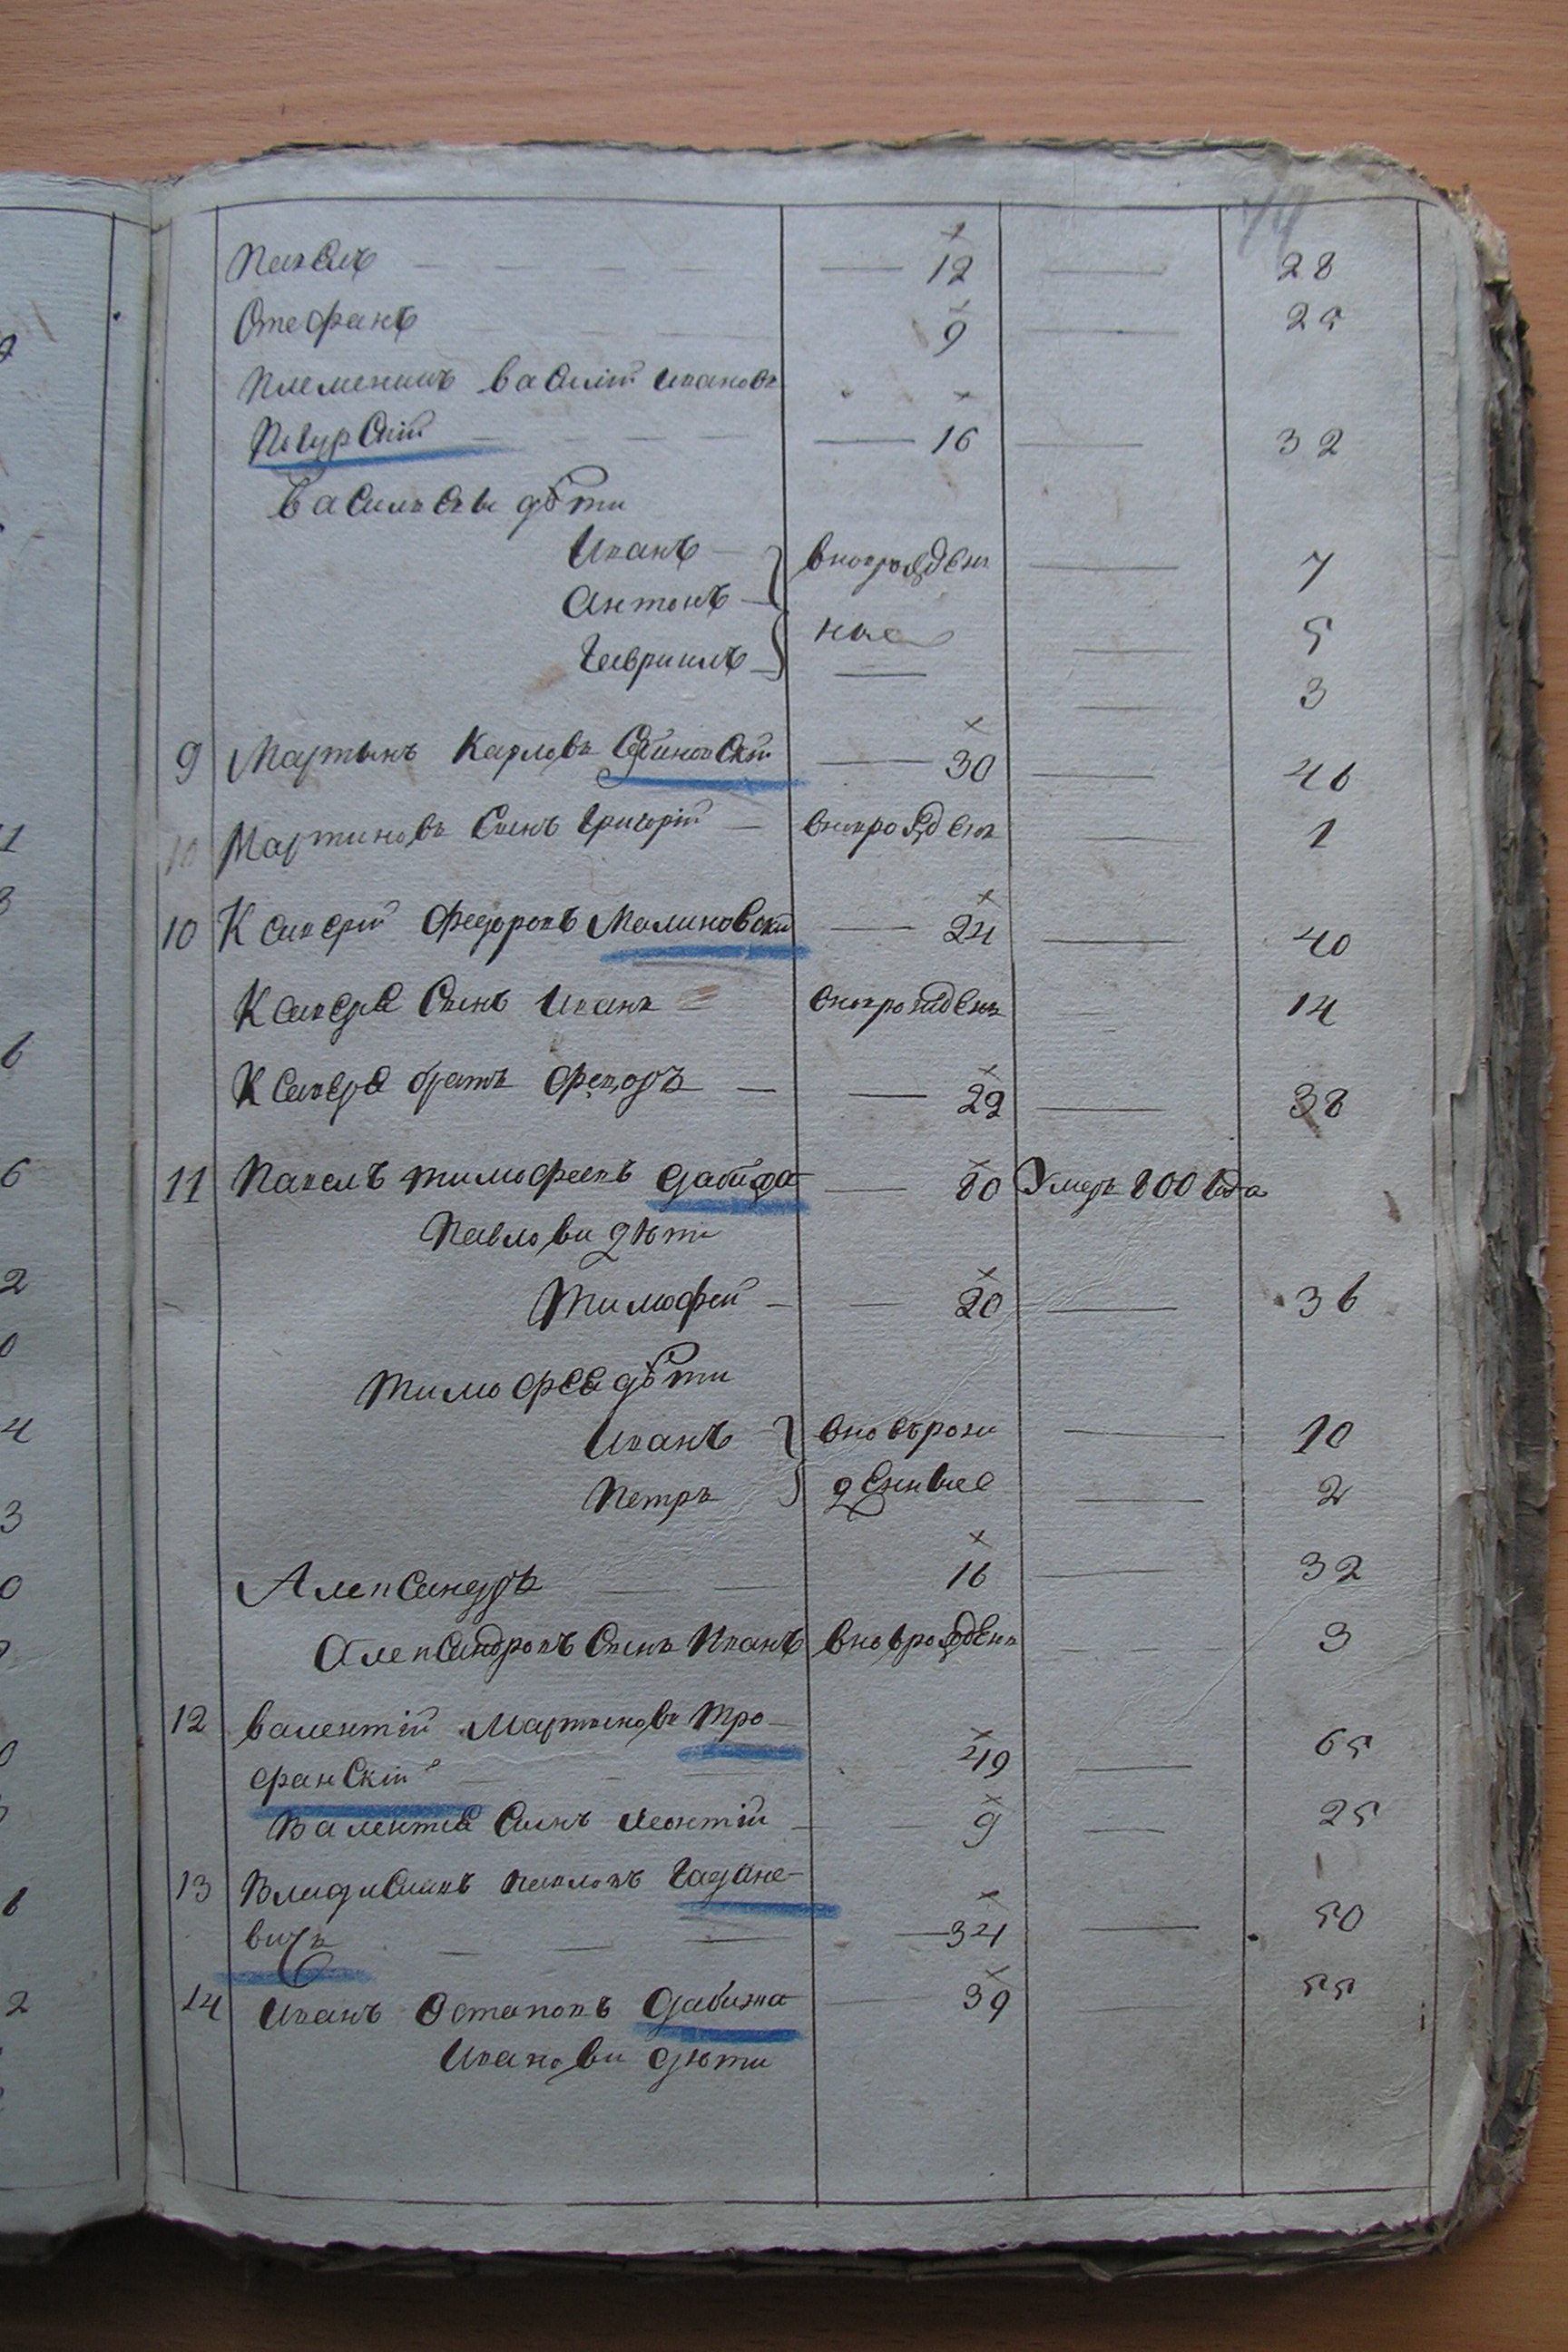 Павелъ — 12 — 28
Стефанъ 9 — 25
Племеникъ Василій Ивановъ
— 16 — 32
Васильевы дѣти
Иванъ — вноврожден — 7
Антонъ — ные — 5
Гавриилъ — — 3
9 Мартынъ Карловъ — 30 — 46
10 Мартиновъ Сынъ Григорій — вноврожден — 1
10 Ксаверій Федоровъ Малиновскій — 24 — 40
Ксаверя Сынъ Иванъ вноврожденъ — 14
Ксаверя братъ Феодоръ — 22 — 38
11 Павелъ Тимофеевъ Дабижа — 80 Умеръ 800 года
Павлови дѣти
Тимофей — 20 — 36
Тимофея дѣти
Иванъ вновърож — 10
Петръ денные — 2
Александръ — 16 — 32
Александровъ Сынъ Иванъ вноврожденъ — 3
12 Валентій Мартыновъ Тро-
фанскій 49 — 65
Валентія Сынъ Леонтій — 9 — 25
13 Владиславъ Павловъ
вичъ — 34 — 50
14 Иванъ Остаповъ Дабижа — 39 55
Иванови дѣти